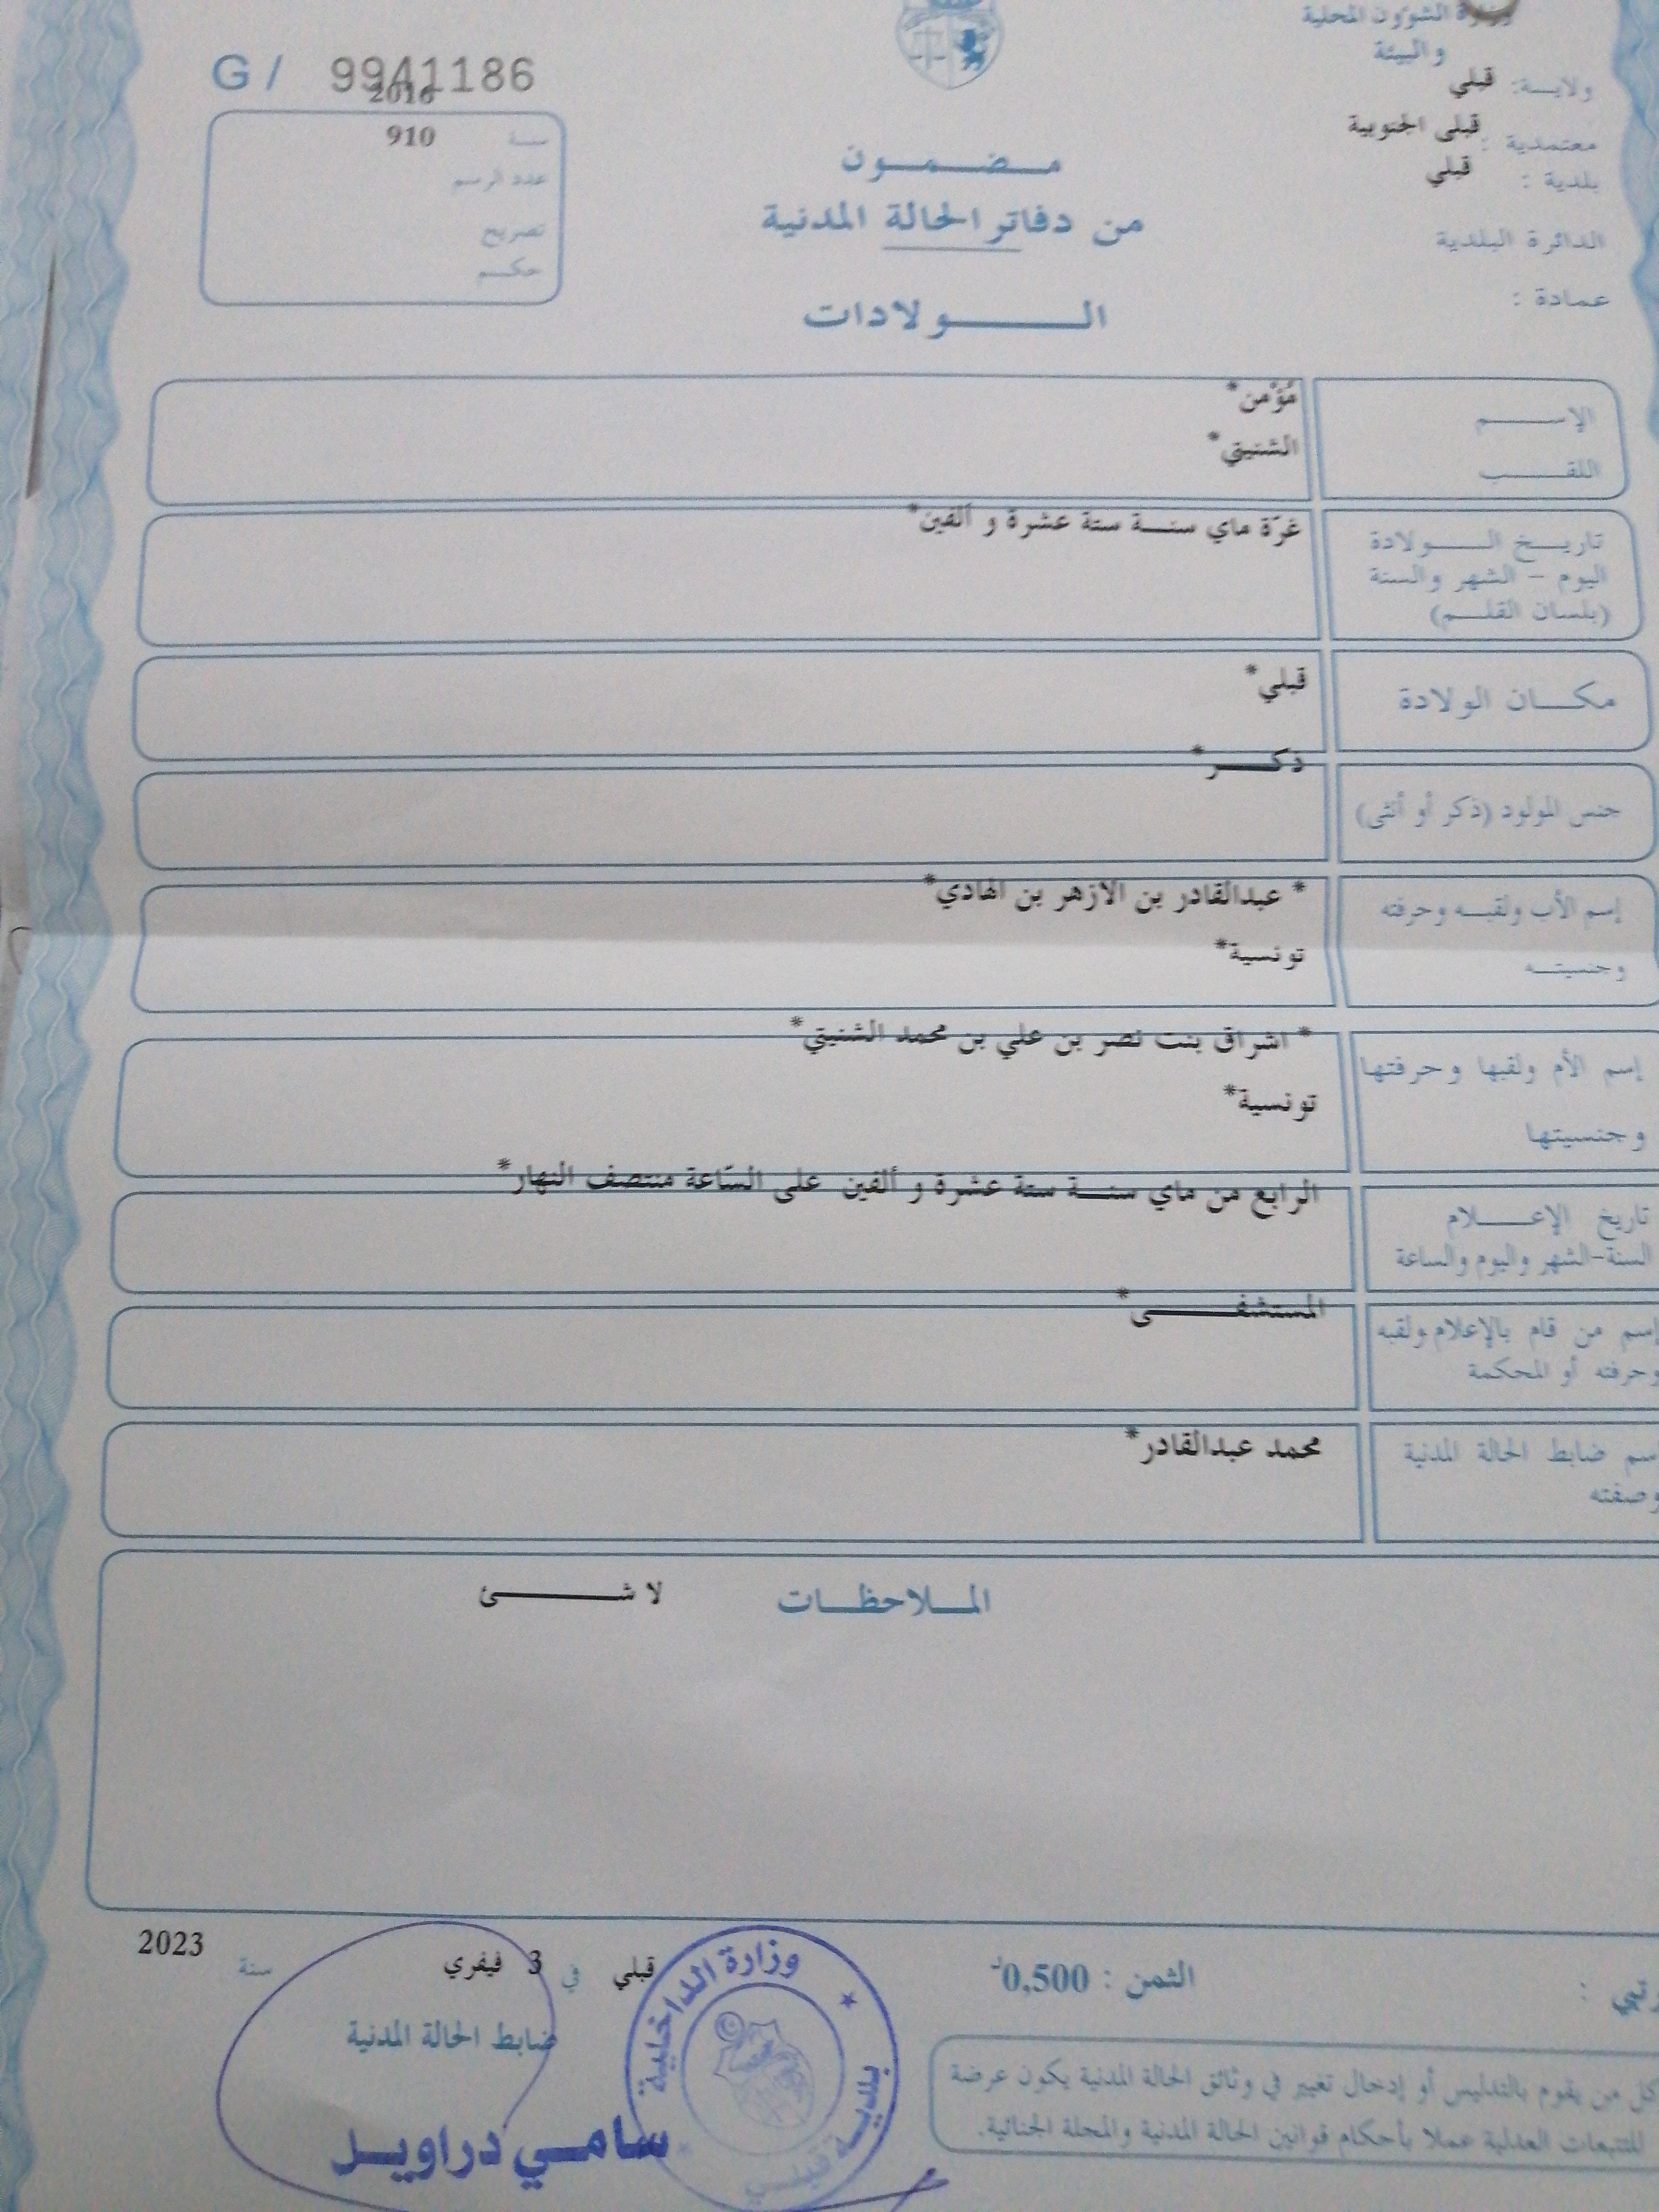 وزارة الشؤون المحلية
و البيئة
ولايـــة: قبلي
معتمدية : قبلى الجنوبية
بلدية : قبلي
الدائرة البلدية
عمادة :
G / 9941186
2016
سنة 910
عدد الرسم
تصريح
حكم
مضمون
من دفاتر الحالة المدنية
الولادات
الإسم مُؤْمن*
اللقب الشنيتي*
تاريخ الولادة غرّة ماي سنة ستة عشرة و ألفين*
اليوم - الشهر والسنة
(بلسان القلم)
مكان الولادة قبلي*
جنس المولود (ذكر أو أنثى) ذكر*
إسم الأب ولقبه وحرفته * عبدالقادر بن الازهر بن الهادي*
وجنسيته تونسية*
إسم الأم ولقبها وحرفتها * اشراق بنت نصر بن علي بن محمد الشنيتي*
وجنسيتها تونسية*
تاريخ الإعلام الرابع من ماي سنة ستة عشرة و ألفين على السّاعة منتصف النهار*
السنة-الشهر واليوم والساعة
إسم من قام بالإعلام ولقبه المستشفى*
وحرفته أو المحكمة
سم ضابط الحالة المدنية محمد عبدالقادر*
وصفته
الملاحظات لا شئ
الثمن : 0,500د
قبلي في 3 فيفري سنة 2023
ضابط الحالة المدنية
سامي دراويل
وزارة الداخلية
بلدية قبلي
كل من يقوم بالتدليس أو إدخال تغيير في وثائق الحالة المدنية يكون عرضة
للتتبعات العدلية عملا بأحكام قوانين الحالة المدنية والمجلة الجنائية.